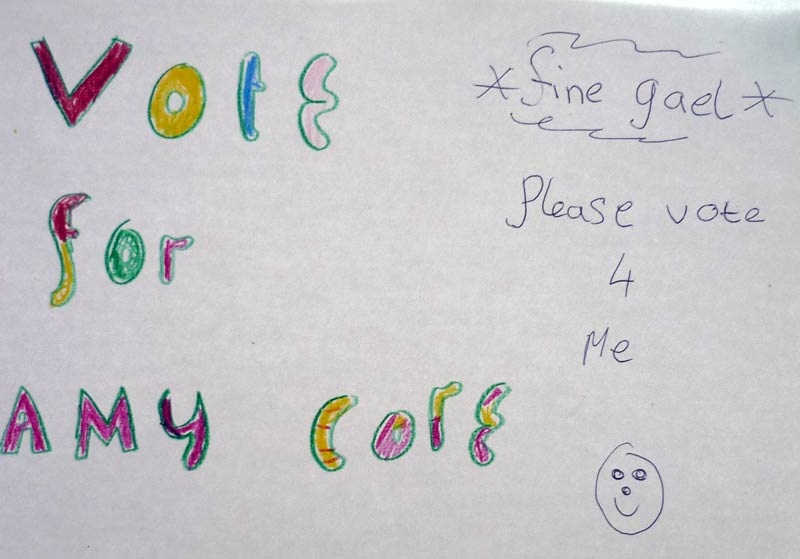 Vote
for
AMY Core
*fine gael*
Please vote
4
Me